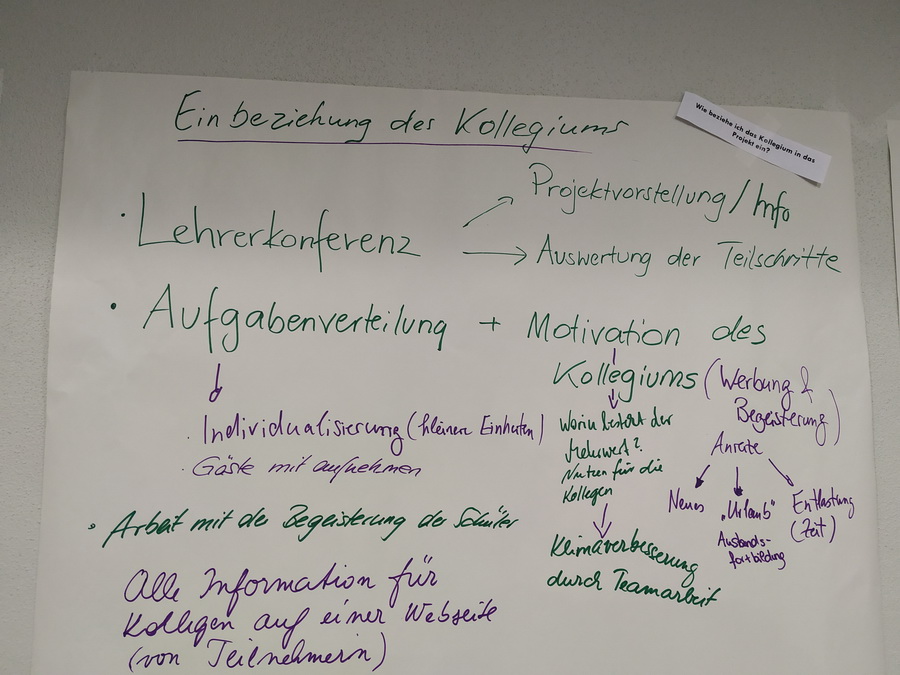 Einbeziehung des Kollegiums
Wie beziehe ich das Kollegium in das
Projekt ein?
Projektvorstellung / Info
· Lehrerkonferenz
Auswertung der Teilschritte
· Aufgabenverteilung + Motivation des
Kollegiums (Werbung &
Begeisterung)
· Individualisierung (kleinere Einheiten)
· Gäste mit aufnehmen
Worin besteht der
Mehrwert?
Nutzen für die
Kollegen
Klimaverbesserung
durch Teamarbeit
Anreize
Neues
„Urlaub“
Auslands-
fortbildung
Entlastung
(Zeit)
· Arbeit mit der Begeisterung der Schüler
Alle Information für
Kollegen auf einer Webseite
(von Teilnehmern)